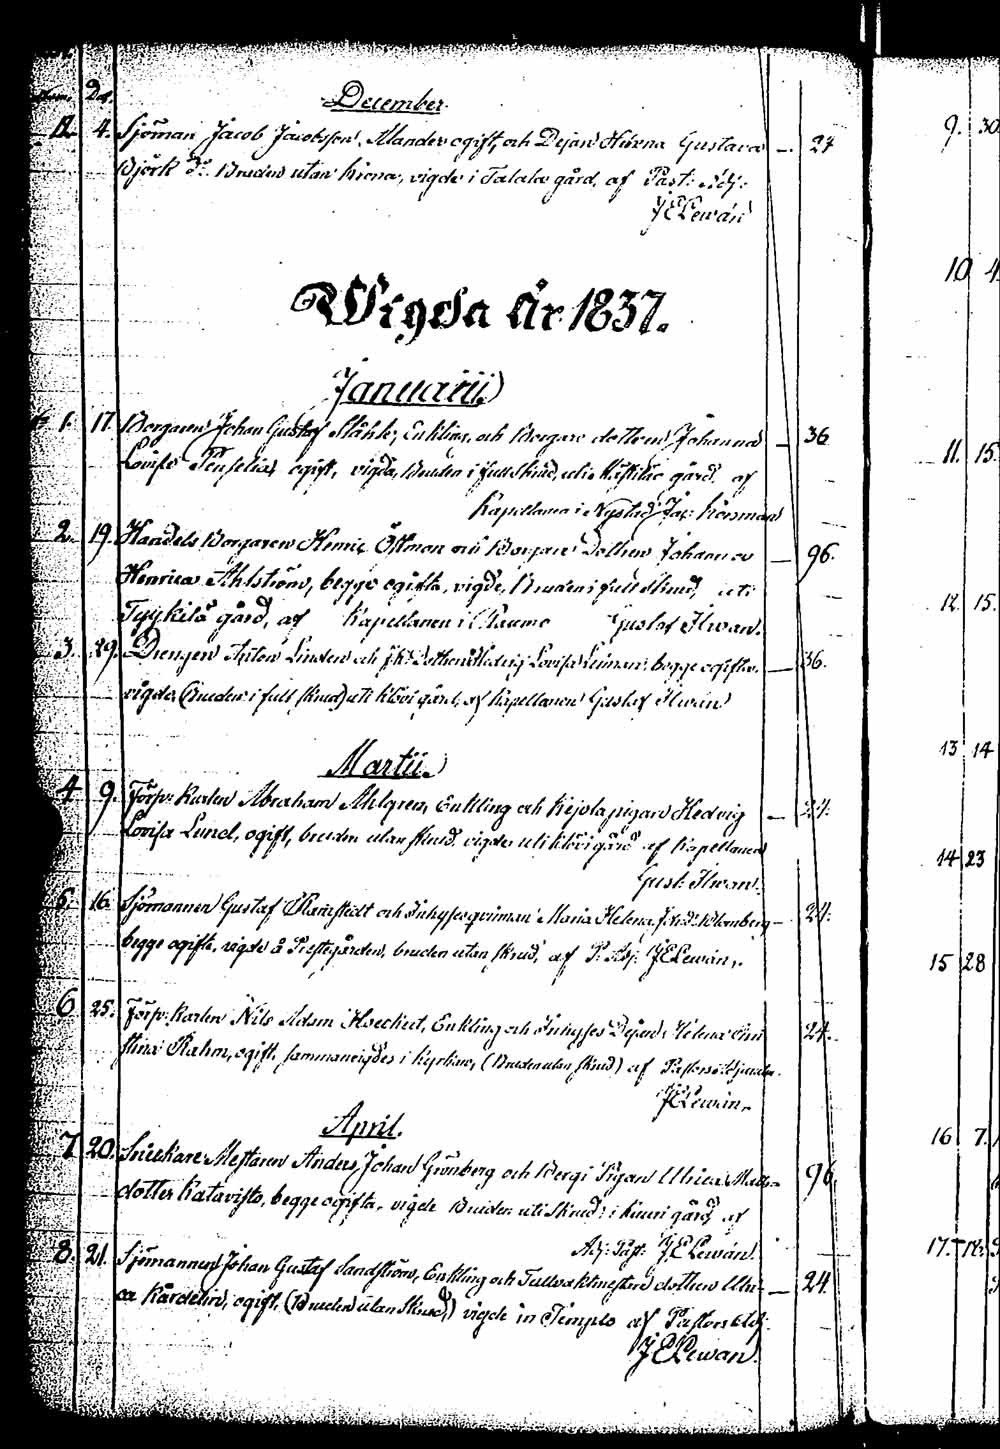 Num. Dat.
December
12. 4. Sjöman Jacob Jacobsson Alander ogift, och Dejan Helena Gustava — 24
Björk do. Bruden utan krona, vigde i Talala gård, af Past: Adj:
J E Lewán
Wigda År 1837.
Januarii
1. 17. Borgaren Johan Gustaf Ståhle, Enkling, och Borgare dottren Johanna — 36
Lovisa ogift, vigde, Bruden i full skrud, uti gård, af
Kapellanen i Nystad Jac:
2. 19. Handels Borgaren Henric Östman och Borgare Dottren Johanna — 96.
Henrica Ahlström, begge ogifta, vigde, Bruden i full skrud, uti
Tyykilä gård, af Kapellanen i Raumo Gustaf Ilwan.
3. 29. Drengen Anton Linden och Dottren Hedvig Lovisa Leiman, begge ogifta, — 36.
vigde, (Bruden i full skrud) uti Klövi gård, af Kapellanen Gustaf Ilwan
Martii.
4 9. Förp: Karlen Abraham Ahlgren, Enkling och pigan Hedvig — 24.
Lovisa Lund, ogift, bruden utan skrud, vigde uti Klövi gård af Kapellanen
Gust: Ilwan.
5. 16. Sjömannen Gustaf Ramstedt och Inhyses qvinnan Maria Helena Blomberg — 24.
begge ogifta, vigde å Prestgården, bruden utan skrud, af P. Adj: J E Lewán.
6 25. Förp: Karlen Nils Adam Hoeckert, Enkling och Inhyses Dejan Helena Chri 24.
stina Rahm, ogift, sammanvigdes i Kyrkan, (Bruden utan skrud) af Pastors Adjuncten
J E Lewán.
April.
7 20. Snickare Mestaren Anders Johan Grönberg och Bergs Pigan Ulrica Matts- 96
dotter Katavisto, begge ogifta, vigde Bruden uti Skrud i Kauri gård, af
Adj: Past: J E Lewán.
8. 21. Sjömannen Johan Gustaf Sandström, Enkling och Tullvaktmestare dottren Ulri- — 24.
ca Kardelin, ogift, (Bruden utan Skrud,) vigde in Templo af Pastors Adj.
J E Lewan.
9. 30
10 4
11. 15.
12. 15.
13 14
14 23
15 28
16 7.
17.